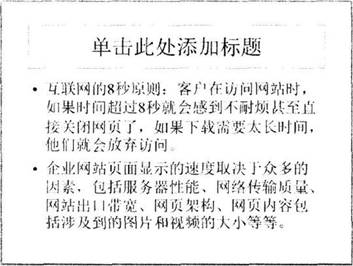 单击此处添加标题
• 互联网的8秒原则：客户在访问网站时，
如果时间超过8秒就会感到不耐烦甚至直
接关闭网页了，如果下载需要太长时间，
他们就会放弃访问。
• 企业网站页面显示的速度取决于众多的
因素，包括服务器性能、网络传输质量、
网站出口带宽、网页架构、网页内容包
括涉及到的图片和视频的大小等等。